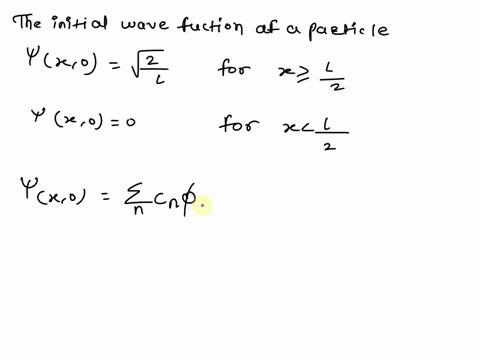 The initial wave fuction of a particle
Ψ(x,0) = √2/L for x ≥ L/2
Ψ(x,0) = 0 for x < L/2
Ψ(x,0) = Σn cnϕ